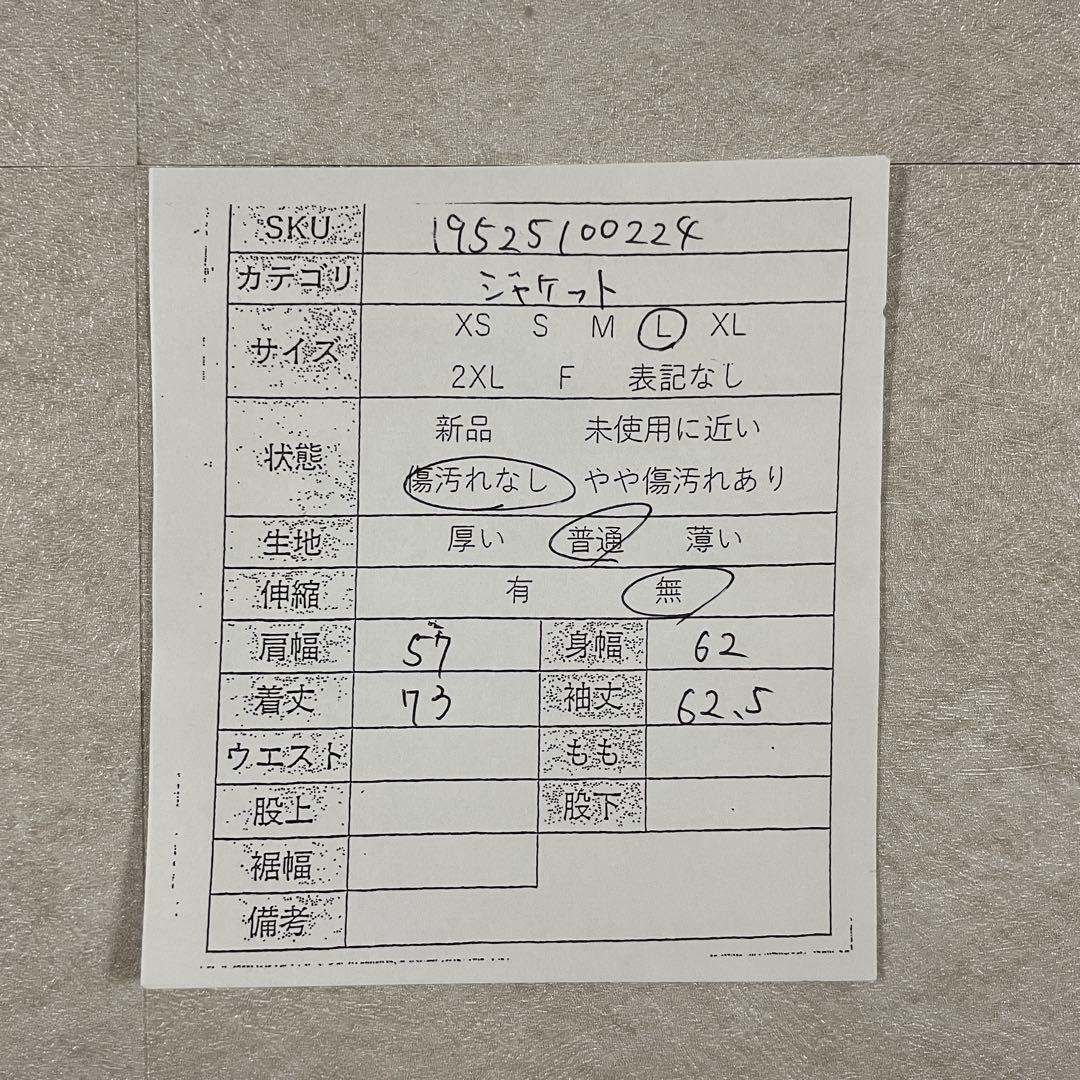 SKU 19525100224
カテゴリ ジャケット
サイズ XS S M L XL
2XL F 表記なし
状態 新品 未使用に近い
傷汚れなし やや傷汚れあり
生地 厚い 普通 薄い
伸縮 有 無
肩幅 57 身幅 62
着丈 73 袖丈 62.5
ウエスト もも
股上 股下
裾幅
備考